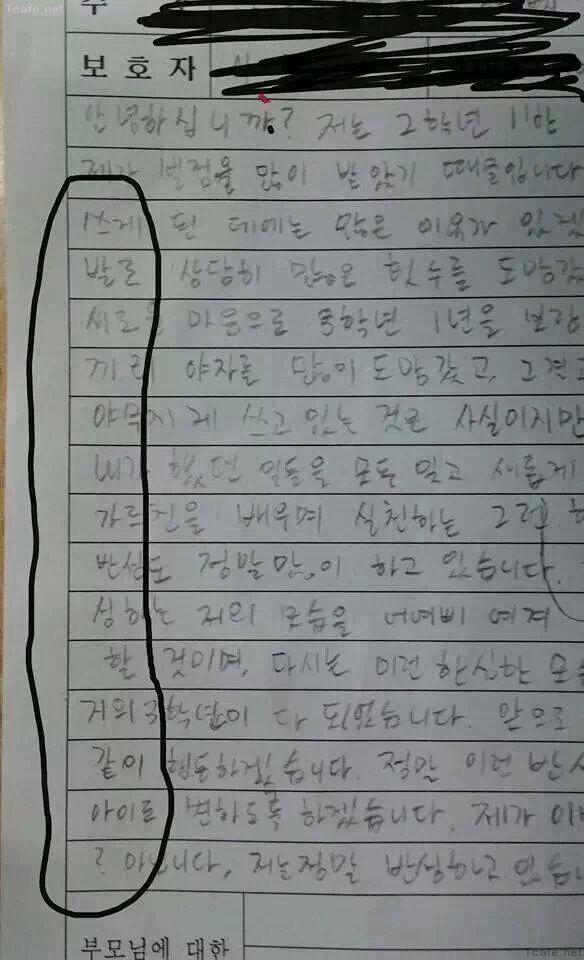 Tcafe.net
주
보 호 자
안녕하십니까? 저는 2학년 11반
제가 벌점을 많이 받았기 때문입니다
쓰게 된 데에는 많은 이유가 있겠
발로 상당히 많은 횟수를 도망갔
새로운 마음으로 3학년 1년을 보람
끼리 야자를 많이 도망갔고, 그견고
야무지게 쓰고 있는 것은 사실이지만
내가 했던 일들을 모두 잊고 새롭게
가르침을 배우며 실천하는 그런
반성도 정말 많이 하고 있습니다.
성하는 저의 모습을 어여삐 여겨
할 것이며, 다시는 이런 한심한 모습
거의 3학년이 다 되었습니다. 앞으로
같이 행동하겠습니다. 정말 이런 반성
아이로 변하도록 하겠습니다. 제가 이번
? 아닙니다, 저는 정말 반성하고 있습니
부모님에 대한
Tcafe.net